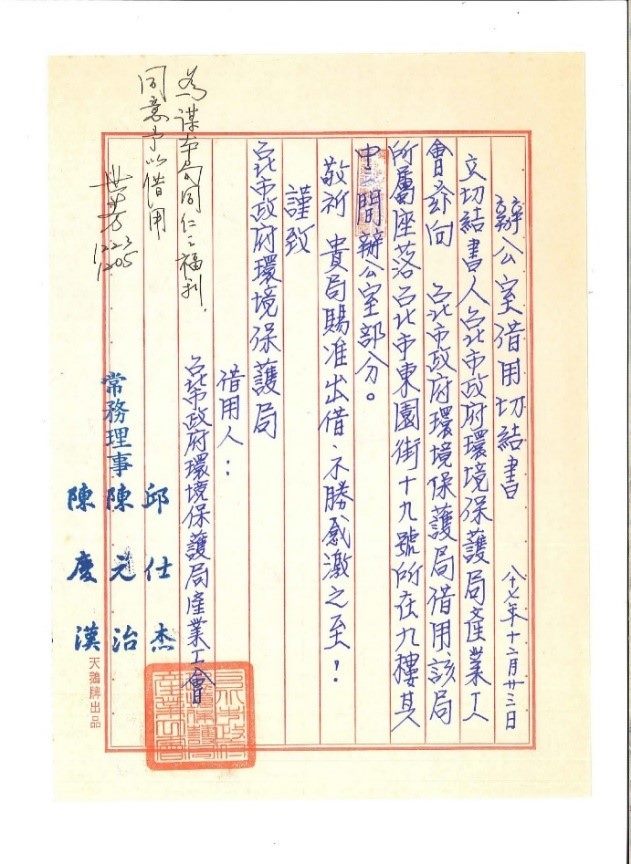 辦公室借用切結書
八十七年十二月廿三日
立切結書人台北市政府環境保護局產業工
會茲向 台北市政府環境保護局借用該局
所屬座落台北市東園街十九號所在九樓其
中三間辦公室部分。
敬祈 貴局賜准出借、不勝感激之至!
謹致
台北市政府環境保護局
借用人:
台北市政府環境保護局產業工會
常務理事
邱仕杰
陳元治
陳慶漢
為謀本局同仁之福利,
同意予以借用
1223
1205
天鵝牌出品